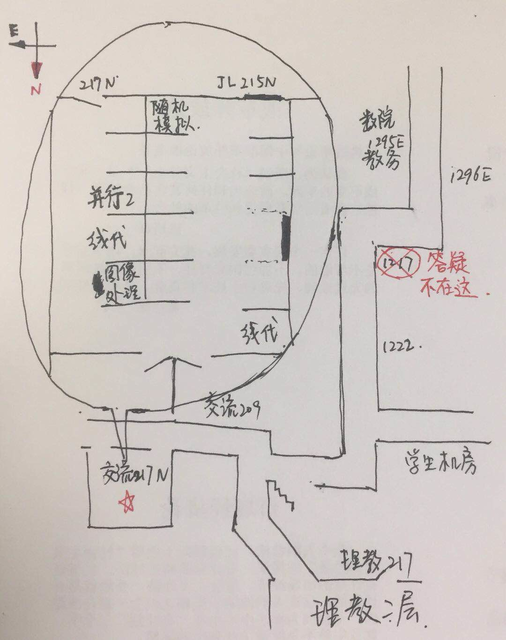 E
N
217N
JL 215N
随机
模拟.
数院
1295E
教务
1296E
并行2
线代
图像
处理
1217 答疑
不在这.
线代
1222.
交流209
交流217N
学生机房
理教217
理教二层.